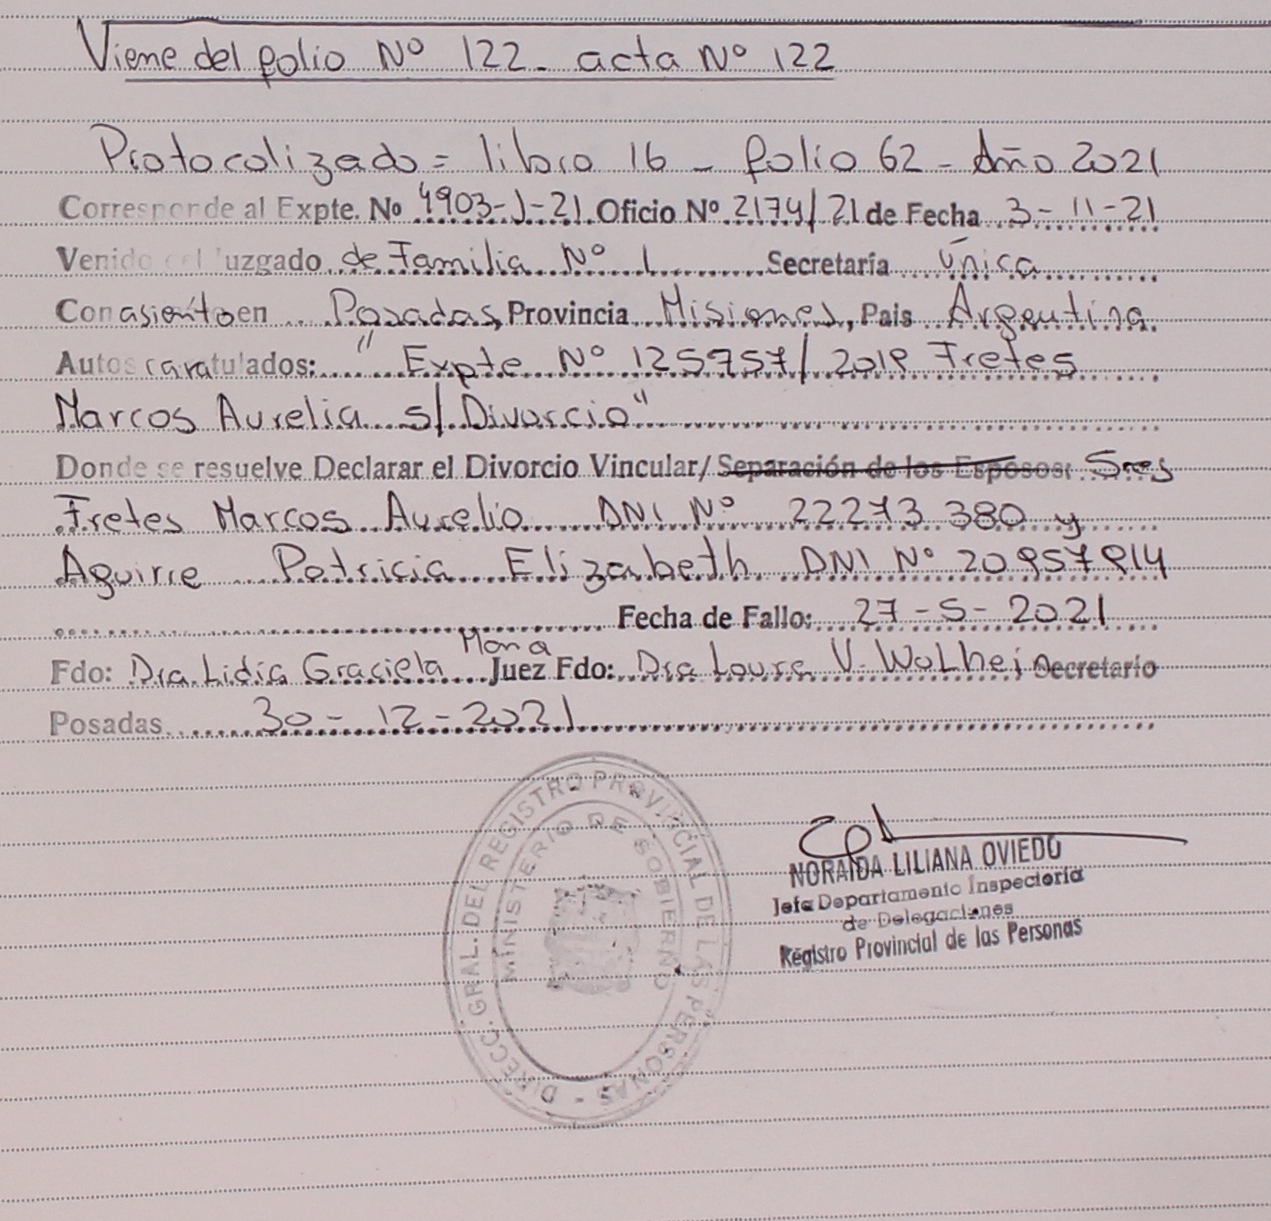 Viene del folio Nº 122 - acta Nº 122
Protocolizado = libro 16 - folio 62 - Año 2021
Corresponde al Expte. No 4903-J-21 Oficio Nº 2174/21 de Fecha 3-11-21
Venido del Juzgado de Familia Nº 1 Secretaría Única
Con asiento en Posadas, Provincia Misiones, Pais Argentina
Autos caratulados: "Expte Nº 125757/2018 Fretes
Marcos Aurelia s/ Divorcio"
Donde se resuelve Declarar el Divorcio Vincular/ Separación de los Esposos: Sres
Fretes Marcos Aurelio DNI Nº 22273380 y
Aguirre Patricia Elizabeth DNI Nº 20957814
Fecha de Fallo: 27-5-2021
Fdo: Dra. Lidia Graciela Mona Juez Fdo: Dra Laura V. Secretario
Posadas 30-12-2021
DIRECC. GRAL. DEL REGISTRO PROVINCIAL DE LAS PERSONAS -
MINISTERIO DE GOBIERNO
NORAIDA LILIANA OVIEDO
Jefa Departamento Inspectoria
de Delegaciones
Registro Provincial de las Personas